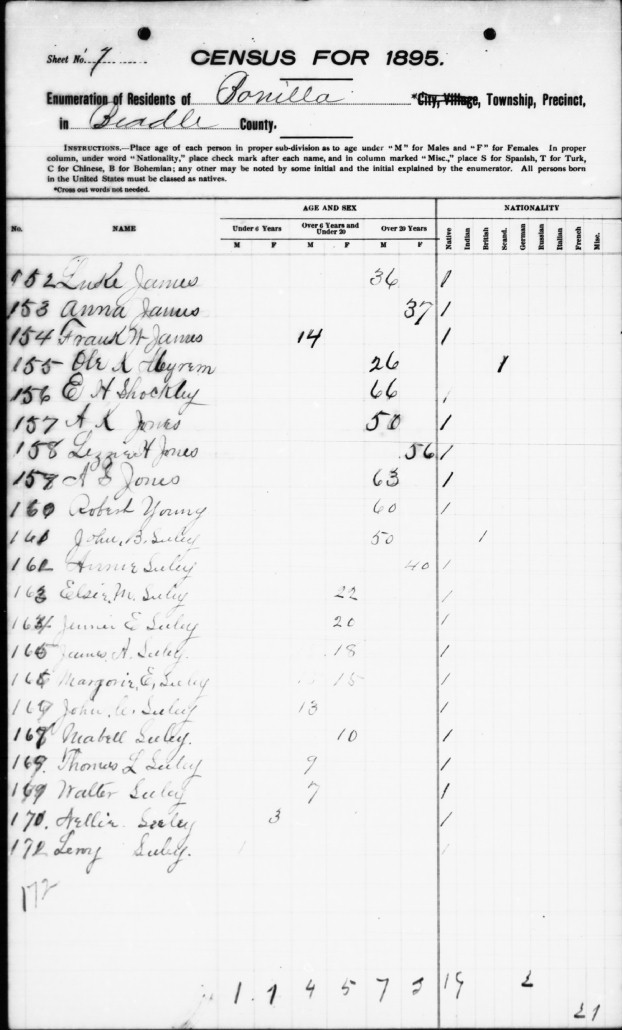 Sheet No. 7
CENSUS FOR 1895.
Enumeration of Residents of Bonilla *City, Village, Township, Precinct,
in Beadle County.
INSTRUCTIONS.—Place age of each person in proper sub-division as to age under "M" for Males and "F" for Females. In proper
column, under word "Nationality," place check mark after each name, and in column marked "Misc.," place S for Spanish, T for Turk,
C for Chinese, B for Bohemian; any other may be noted by some initial and the initial explained by the enumerator. All persons born
in the United States must be classed as natives.
*Cross out words not needed.
AGE AND SEX NATIONALITY
No. NAME Under 6 Years Over 6 Years and Under 20 Over 20 Years Native Indian British Scand. German Russian Italian French Misc.
M F M F M F
152 Luke James 36 1
153 Anna James 37 1
154 Frank W James 14 1
155 Ole K 26 1
156 E H Shockley 66 1
157 A K Jones 50 1
158 Lizzie H Jones 56 1
159 A S Jones 63 1
160 Robert Young 60 1
161 John, B. Seeley 50 1
162 Annie Seeley 40 1
163 Elsie, M. Seeley 22 1
164 Jennie E Seeley 20 1
165 James, A. Seeley. 18 1
166 Margorie, E, Seeley 15 1
167 John, Seeley 13 1
168 Mabell Seeley. 10 1
169. Thomas L Seeley 9 1
169 Walter Seeley 7 1
170. Nellie Seeley 3 1
172 Leroy Seeley. 1 1
172
1 1 4 5 7 3 19 2
21